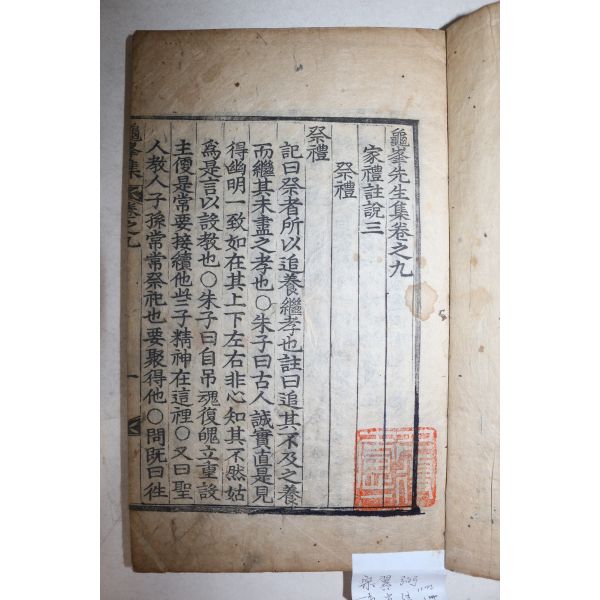 龜峯先生集卷之九
家禮註說三
祭禮
祭禮
記曰祭者所以追養繼孝也註曰追其不及之養
而繼其未盡之孝也○朱子曰古人誠實直是見
得幽明一致如在其上下左右非心知其不然姑
爲是言以設敎也○朱子曰自吊魂復魄立重設
主便是常要接續他些子精神在這裡○又曰聖
人敎人子孫常常祭祀也要聚得他○問旣曰徃
龜峯集 卷之九
一
宋翼弼